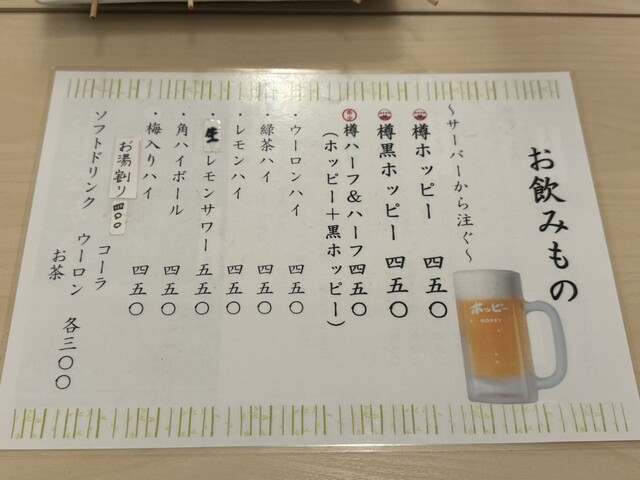 お飲みもの
〜サーバーから注ぐ〜
樽ホッピー 四五〇
樽黒ホッピー 四五〇
樽ハーフ&ハーフ 四五〇
(ホッピー+黒ホッピー)
・ウーロンハイ 四五〇
・緑茶ハイ 四五〇
・レモンハイ 四五〇
・生レモンサワー 五五〇
・角ハイボール 四五〇
・梅入りハイ 四五〇
お湯割り 四〇〇
ソフトドリンク コーラ
ウーロン 各三〇〇
お茶
ホッピー
HOPPY